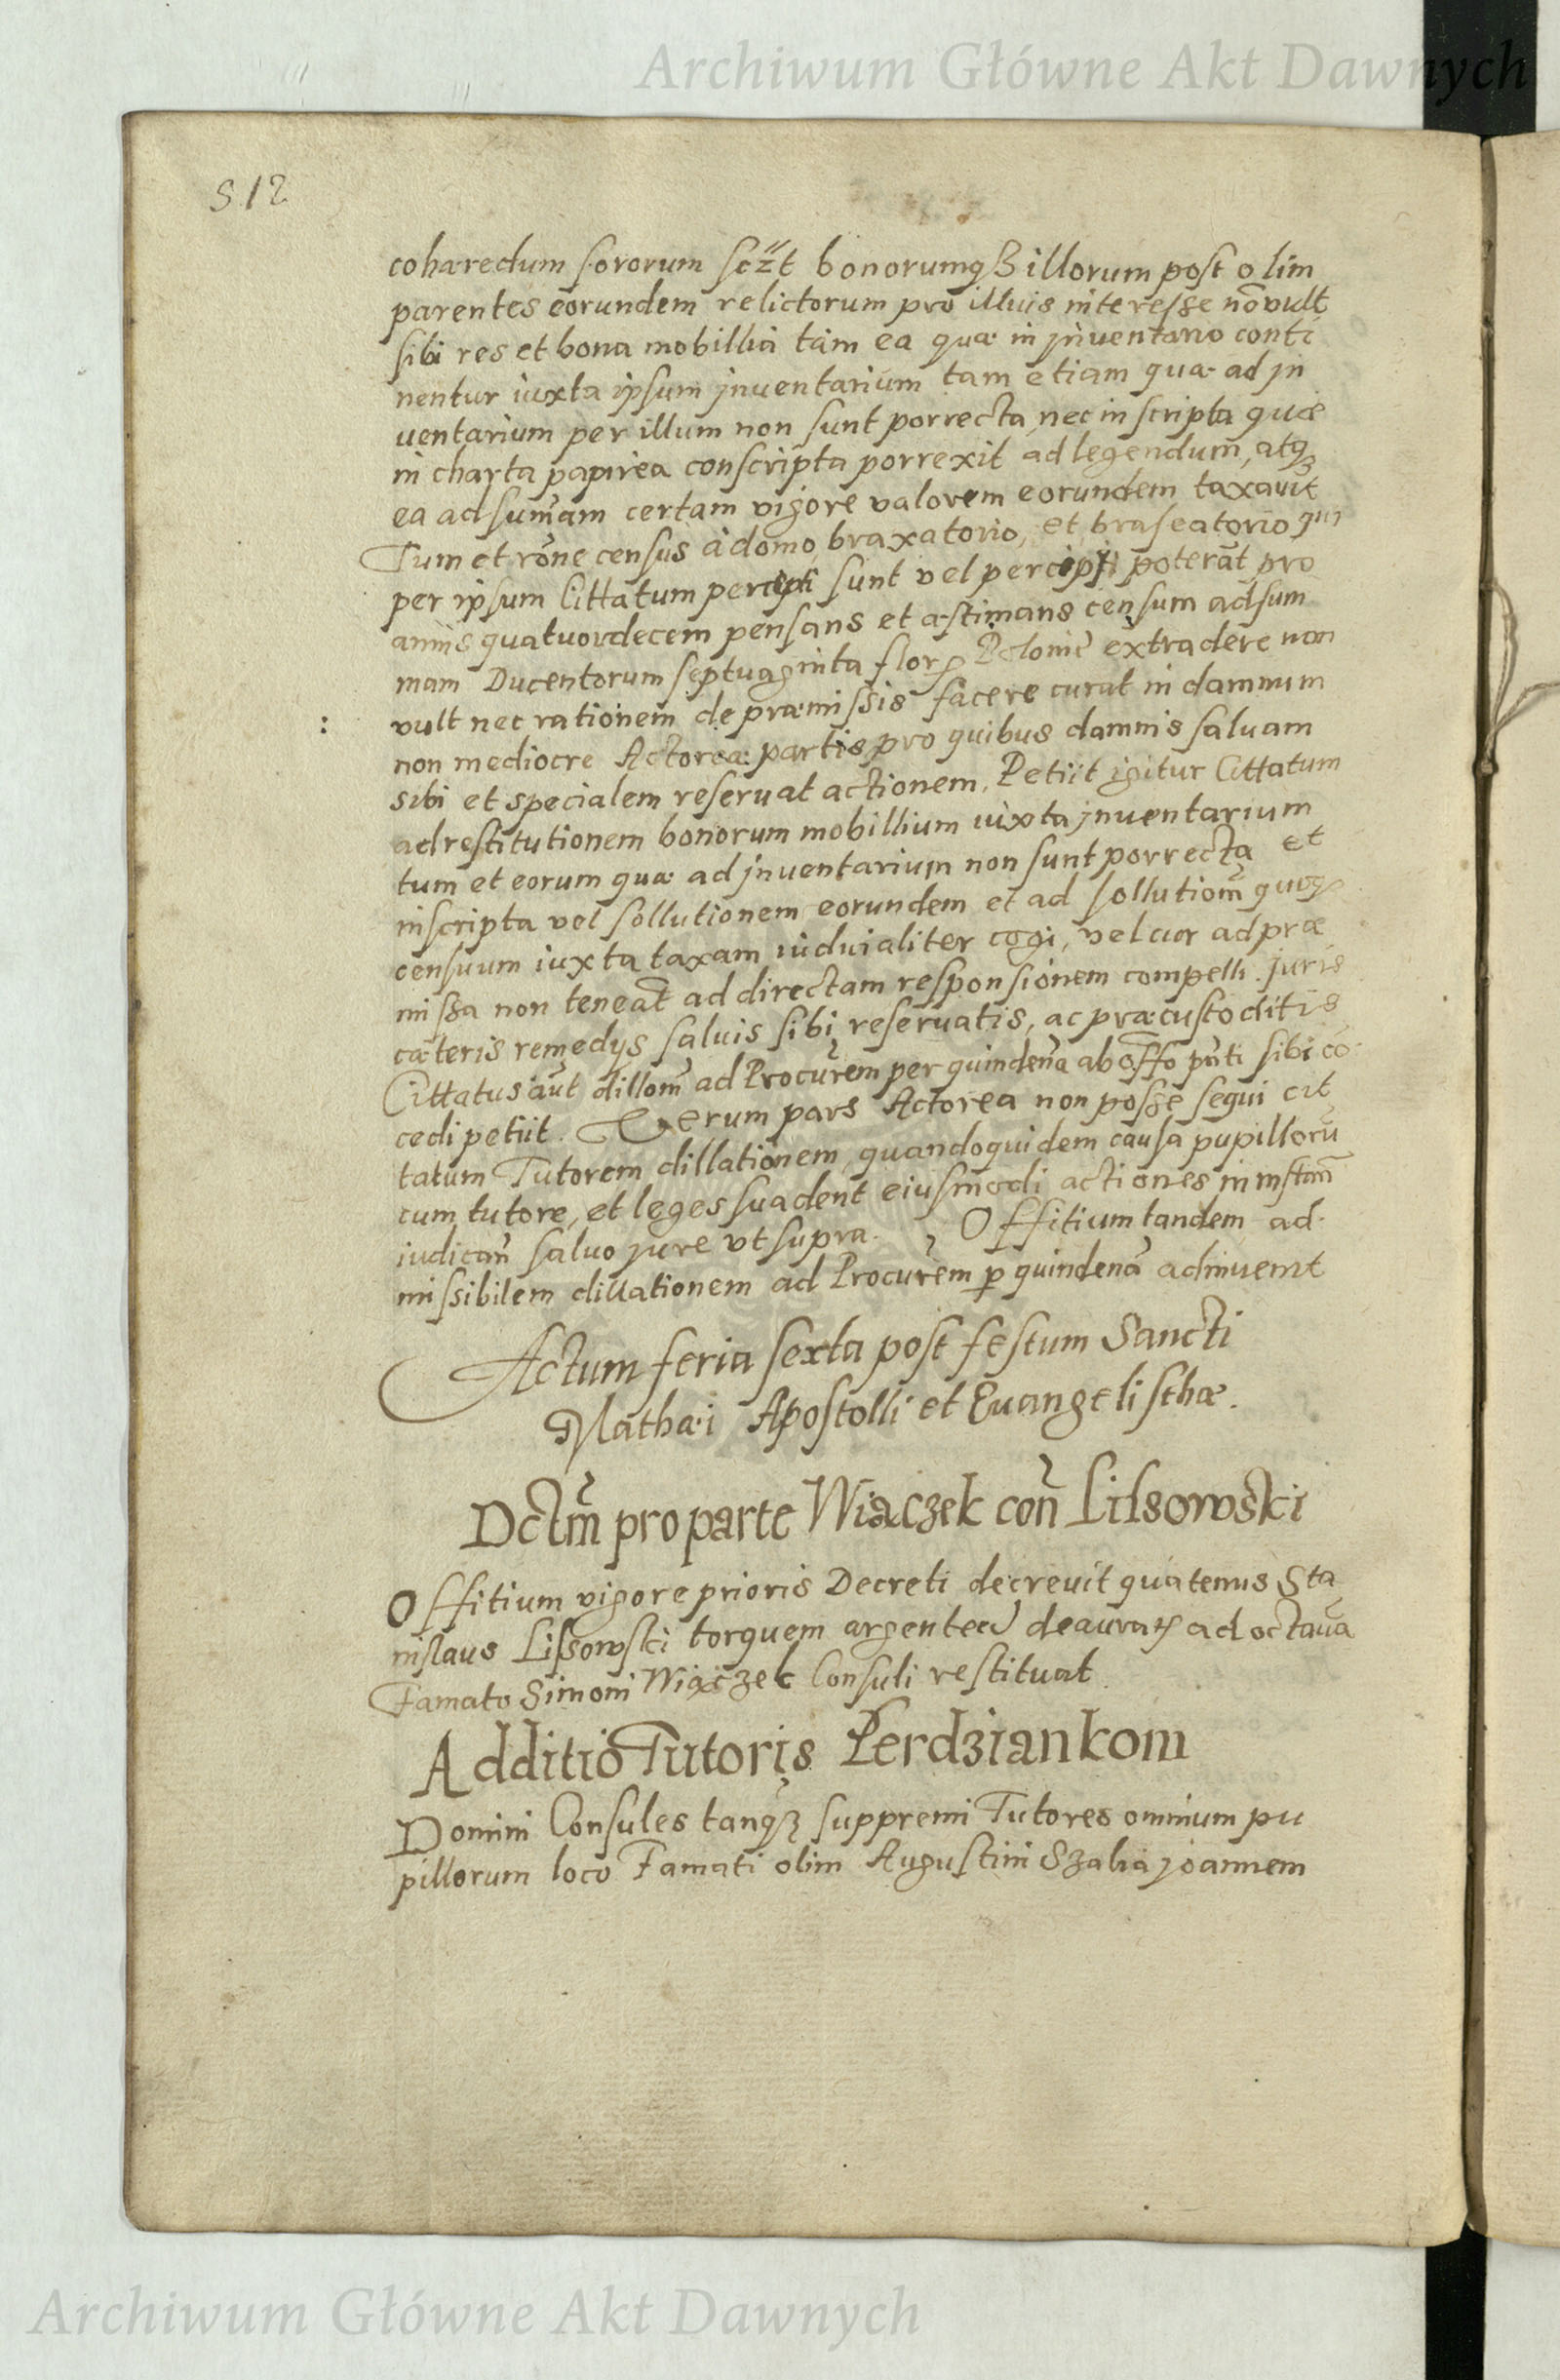 Archiwum Główne Akt Dawnych
512
cohæredum sororum scz̋t bonorumqȝ illorum post olim
parentes eorundem relictorum pro illius interesse nō vult
sibi res et bona mobillia tam ea quæ in jnventario conti
nentur iuxta ipsum jnuentarium tam etiam quæ ad jn
uentarium per illum non sunt porrecta, nec inscripta quæ
in charta papirea conscripta porrexit ad legendum, atqȝ
ea ad sum̃am certam vigore valorem eorundem taxauit
Tum et rõne census à domo braxatorio, et braseatorio qui
per ipsum Cittatum percepti sunt vel percipi poterãt pro
annis quatuordecem pensans et æstimans censum ad sum
mam Ducentorum septuaginta flor Polonie extradere non
vult nec rationem de præmissis facere curat in damnum
non mediocre Actoreæ partis pro quibus damnis saluam
sibi et specialem reseruat actionem. Petiit igitur Cittatum
ad restitutionem bonorum mobillium iuxta jnuentarium
tum et eorum quæ ad jnuentarium non sunt porrecta et
inscripta vel sollutionem eorundem et ad sollutiom̃ quoqȝ
censuum iuxta taxam iuditialiter cogi, vel cur ad præ
missa non teneat̃ ad directam responsionem compelli. Juris
cæteris remedys saluis sibi reseruatis, ac præcustoditis
Cittatus aut̃ dillom̃ ad Procurem per quindenã ab offo pñti sibi cõ
cedi petiit. Verum pars Actorea non posse sequi cit
tatum Tutorem dillationem, quandoquidem causa pupillorũ
cum tutore, et leges suadent eiusmodi actiones in instañ
iudicañ saluo jure vt supra. Offitium tandem ad
missibilem dillationem ad Procurem p quindenã adinuenit
Actum feria sexta post festum Sancti
Mathæi Apostolli et Euangelisthæ.
Dctm̃ pro parte Wiączek coñ Lissowski
Offitium vigore prioris Decreti decreuit quatenus Sta
nislaus Lissowski torquem argenteũ deaurat ad octauã
Famato Simoni Wiączek Consuli restituat.
Additio Tutoris Perdziankom
Domini Consules tanqȝ suppremi Tutores omnium pu
pillorum loco Famati olim Augustini Szalia joannem
Archiwum Główne Akt Dawnych